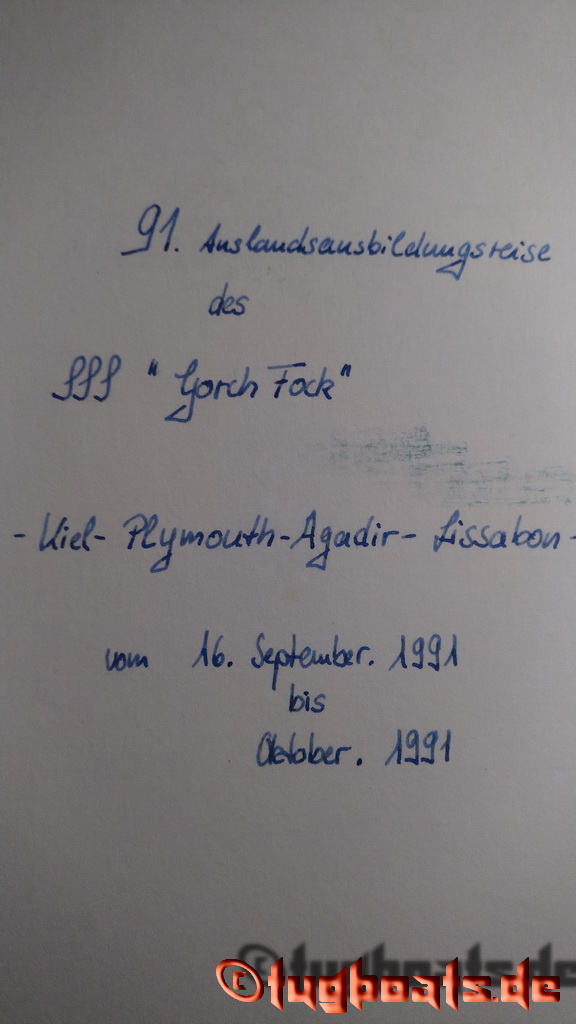 91. Auslandsausbildungsreise
des
SSS "Gorch Fock"
- Kiel - Plymouth - Agadir - Lissabon -
vom 16. September. 1991
bis
Oktober. 1991
©tugboats.de